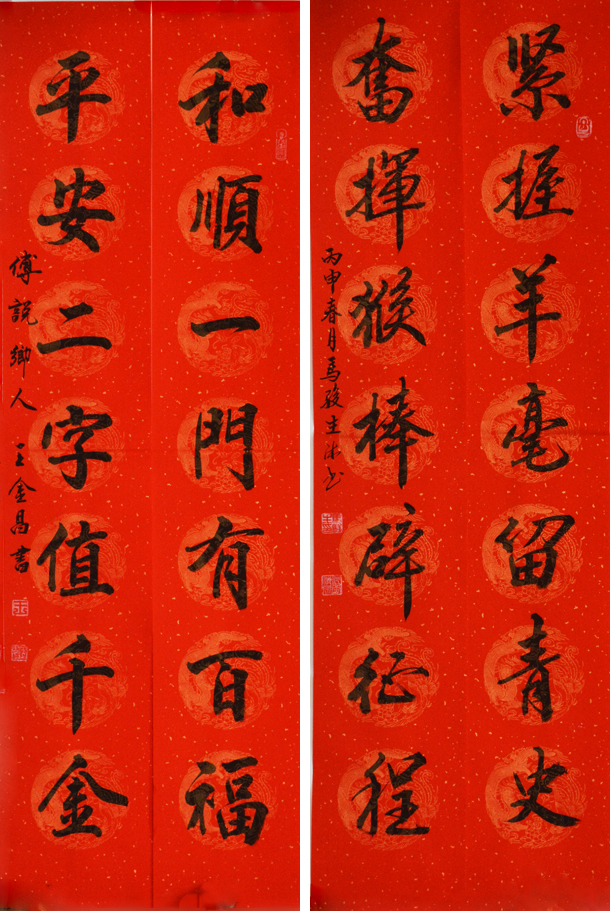 和順一門有百福
平安二字值千金
傅説鄉人 王金昌書
紧握羊毫留青史
奮揮猴棒辟征程
丙申春月馬駿生